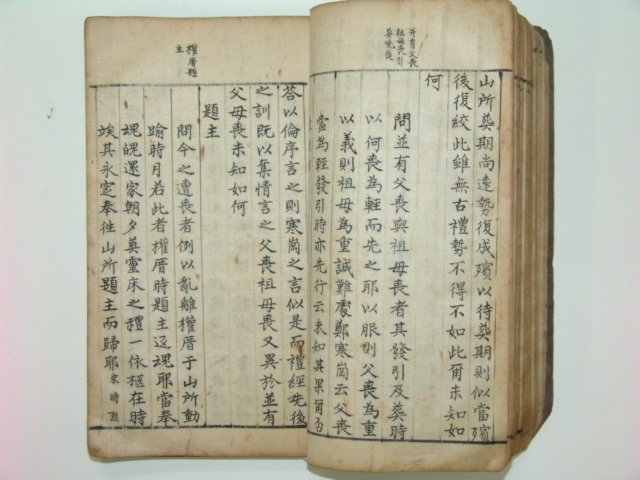 山所葬期尚遠勢復成殯以待葬期則似當殯
後復絞此雖無古禮勢不得不如此爾未知如
何
并有父喪
祖母喪引
葬先後
問並有父喪與祖母喪者其發引及葬時
以何喪為輕而先之耶以服則父喪為重
以義則祖母為重誠難處鄭寒岡云父喪
當為輕發引時亦先行云未知其果爾否
答以倫序言之則寒岡之言似是而禮經先後
之訓既以情言之父喪祖母喪又異於並有
父母喪未知如何
權厝題
主
題主
問今之遭喪者例以亂離權厝于山所動
踰時月若此者權厝時題主返魂耶當奉
魂魄還家朝夕奠靈床之禮一依柩在時
俟其永窆奉往山所題主而歸耶